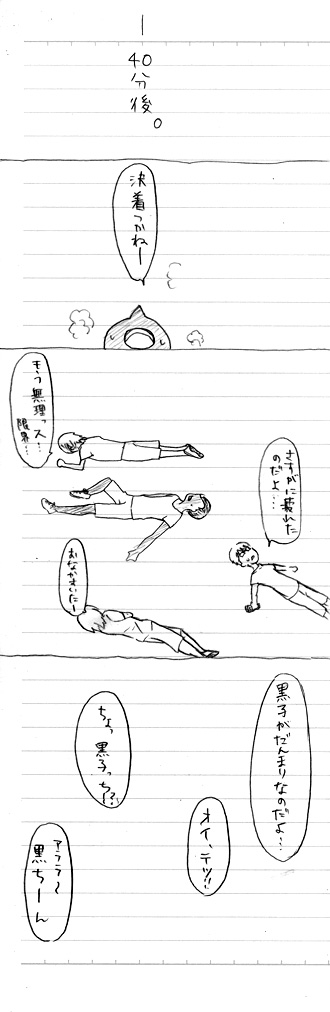 ー
40分後。
決着つかねー
もう無理っス…
限界…
さすがに疲れた
のだよ……
おなかすいたー
黒子がだんまりなのだよ…
ちょっ黒子っち!?
オイ、テツ!!
アララ〜
黒ちーん